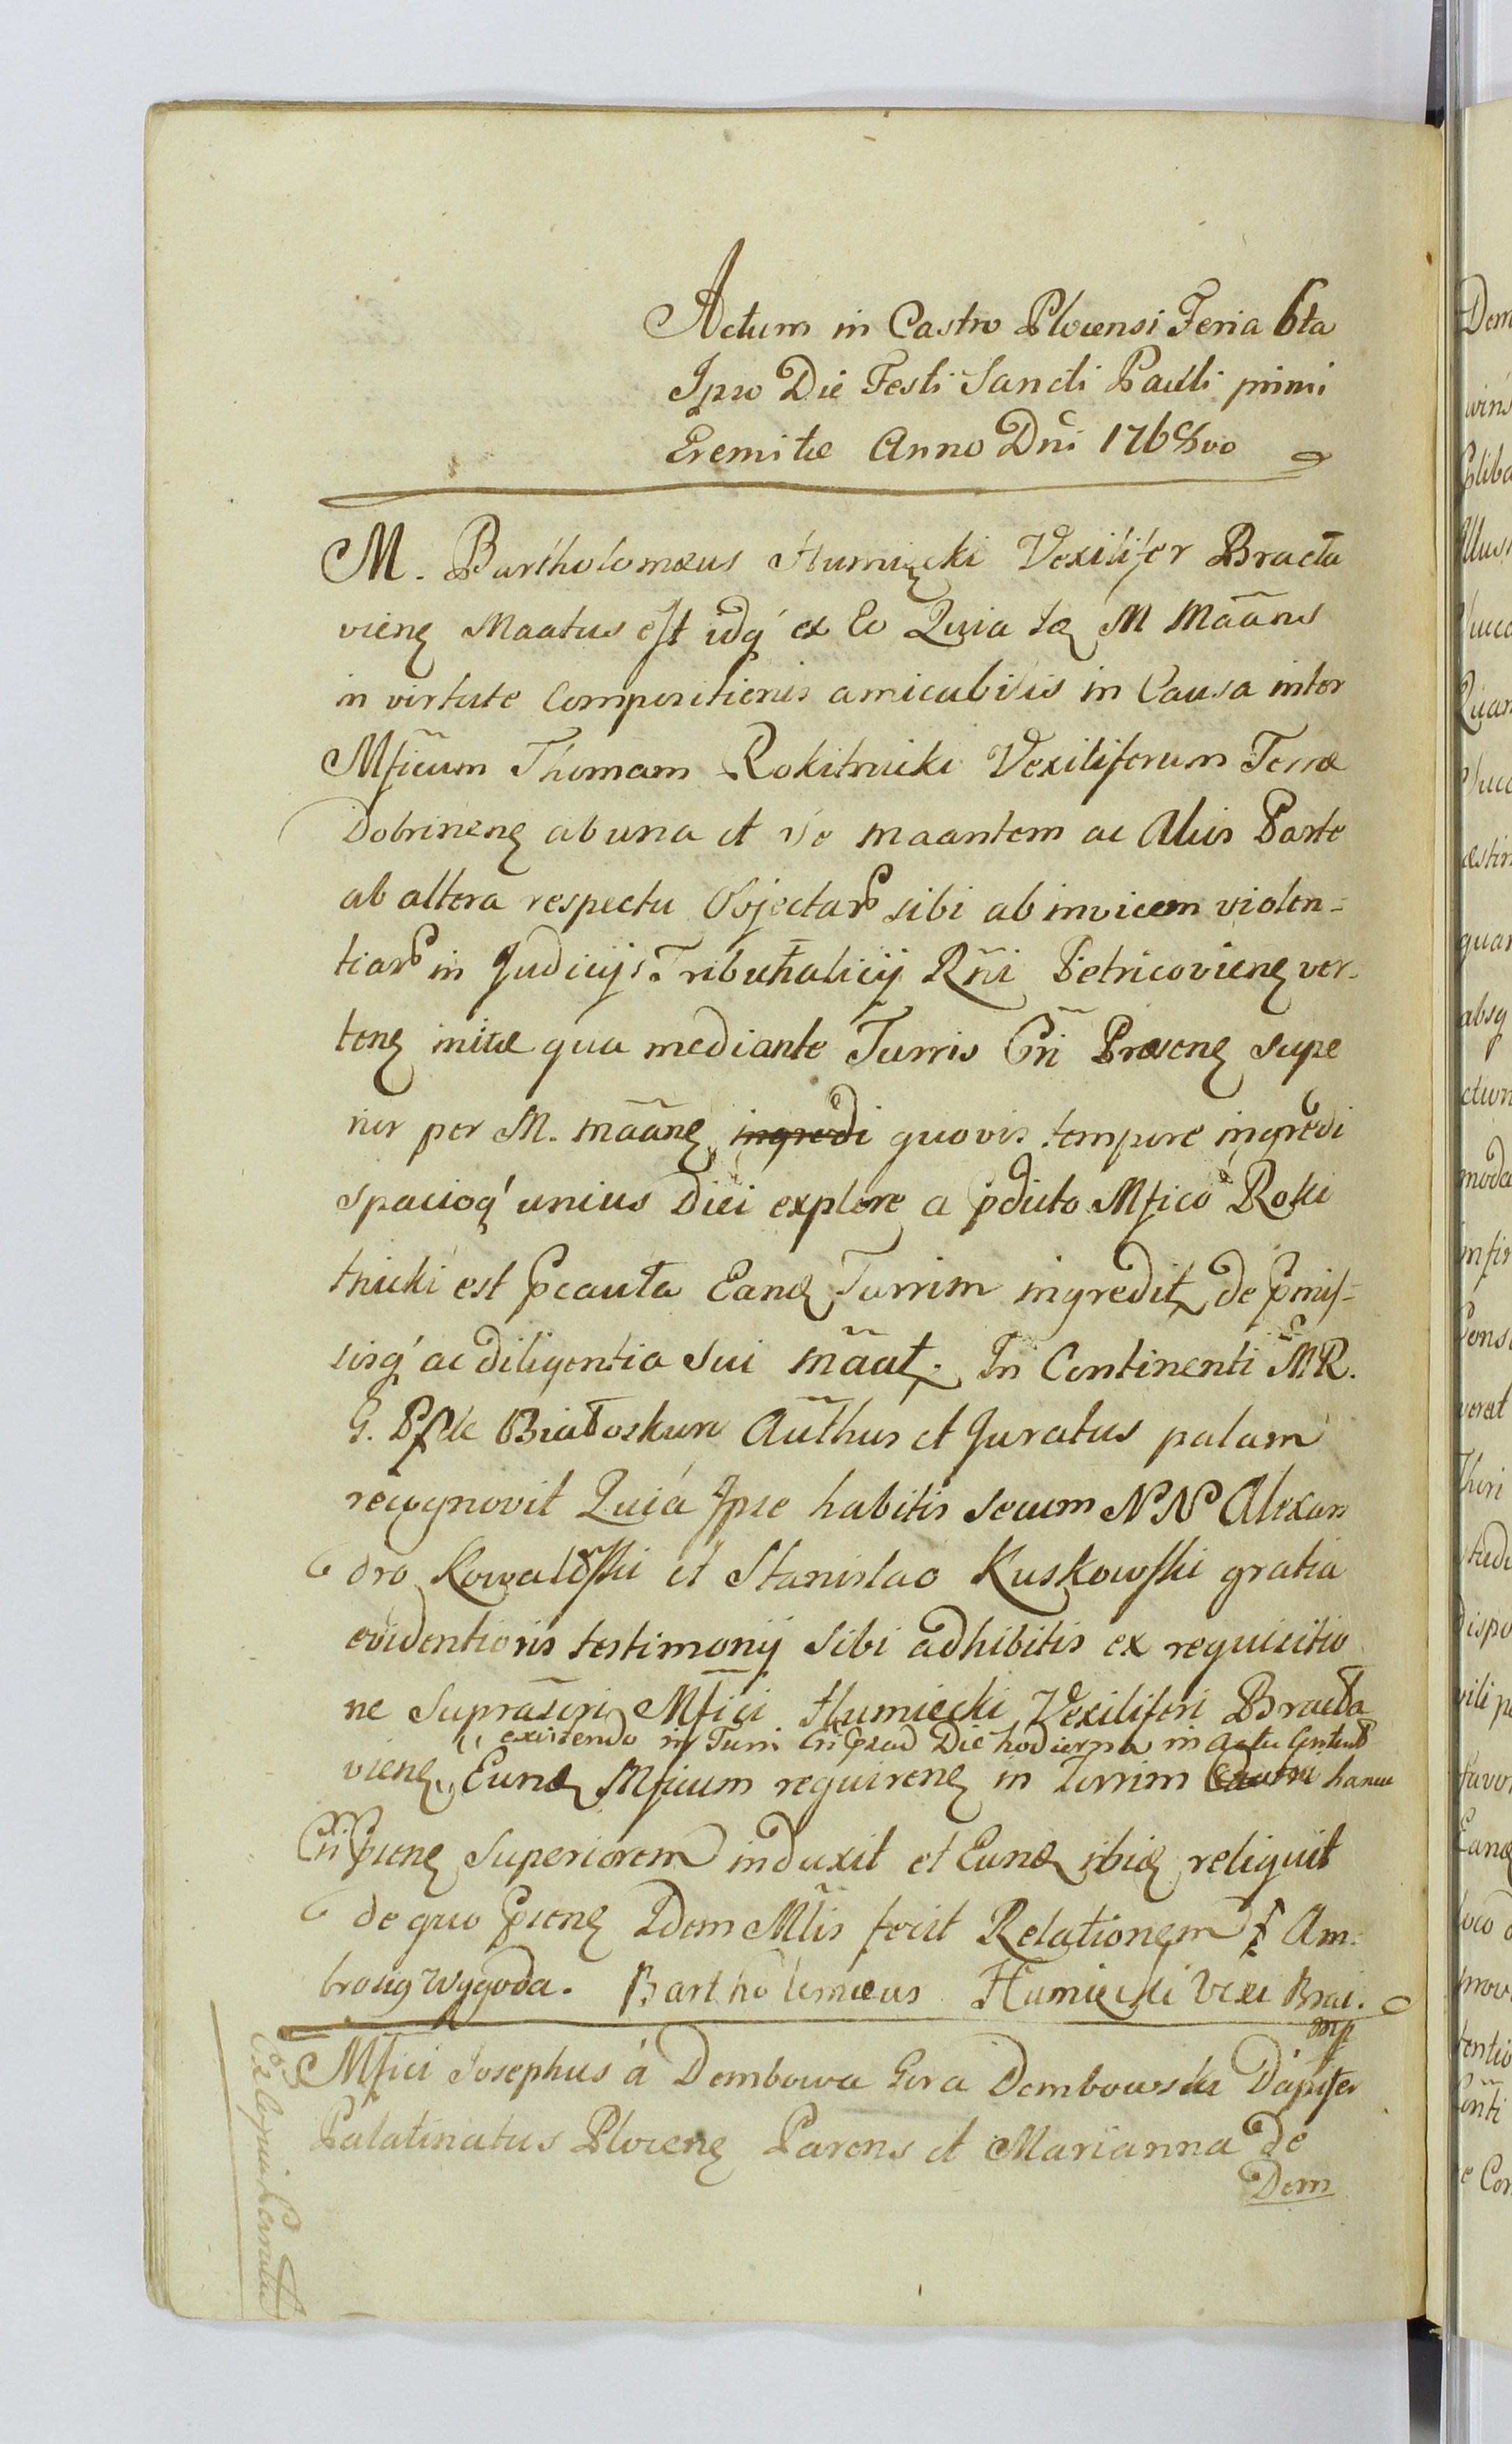 Actum in Castro Plocensi Feria 6ta
Ipso Die Festi Sancti Paulli primi
Eremitæ Anno Dni 1768vo
M. Bartholomæus Humięcki Vexilifer Bracła
vienę Maatus est idq' ex Eo Quia Idę M Mããns
in virtute Compositionis amicabilis in Causa inter
Mficum Thomam Rokitnicki Vexiliferum Terræ
Dobrinenę ab una et Se maantem ac Aliis Parte
ab altera respectu Objectar sibi ab invicem violen=
tiar in Judicijs Tribunalicij Rñi Petricovienę ver=
tenę initæ qua mediante Turris Cri Præsenę supe
rior per M. mããnę ingredi quovis tempore ingredi
spacioq' unius Diei explere a pdicto Mfico Roki
tnicki est pcauta Eandę Turrim ingredit de pmis=
sisq' ac diligentia sui mãat. In Continenti MR.
G. P de Białoskury Aũthus et Juratus palam
recognovit Quia Ipse habitis secum NN Alexan
dro Kowalewski et Stanislao Kuskowski gratia
evidentioris testimonij sibi adhibitis ex requisitio
ne Suprascri Mfici Humiecki Vexiliferi Bracła
existendo in Turri Cri Die hodierna in Actu Content
vienę, Eundę Mficum requirenę in Turrim hancce
Cri psenę Superiorem induxit et Eundę ibidę reliquit
de quo psenę Idem Mlis fecit Relationem Am=
brosig Wygoda. Bartholomæus Humiecki Vexi Brac.
mp
Mfici Josephus á Dembowa Gora Dembowski Dapifer
Palatinatus Plocenę Parens et Marianna de
Dem